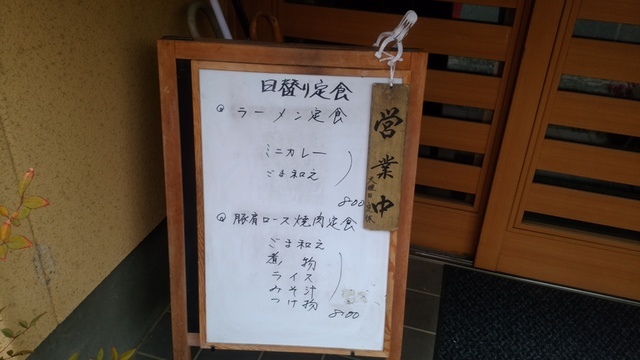 日替り定食
ラーメン定食
ミニカレー
ごま和え
800
豚肩ロース焼肉定食
ごま和え
煮物
ライス
みそ汁
つけ物
800
営業中